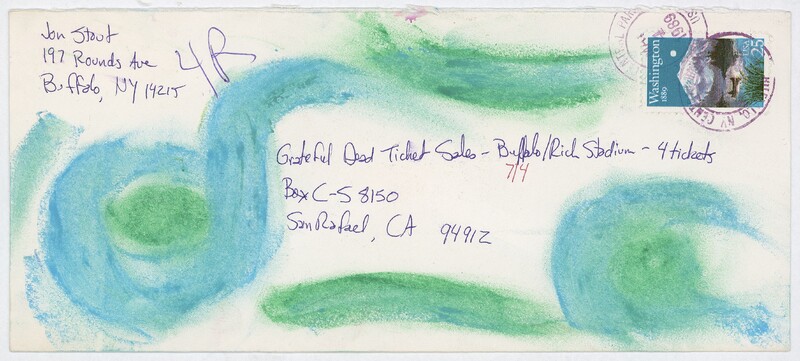 Jon Stout
197 Rounds Ave
Buffalo, NY 14215
4R
Washington
1889
USA
25
1989
Grateful Dead Ticket Sales - Buffalo/Rich Stadium - 4 tickets
7/4
Box C-S 8150
San Rafael, CA 94912